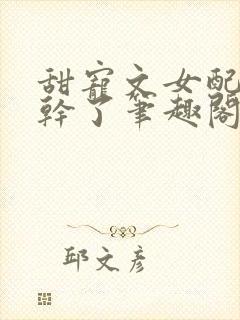 甜寵文女配
幹了筆趣閣
邱文彥